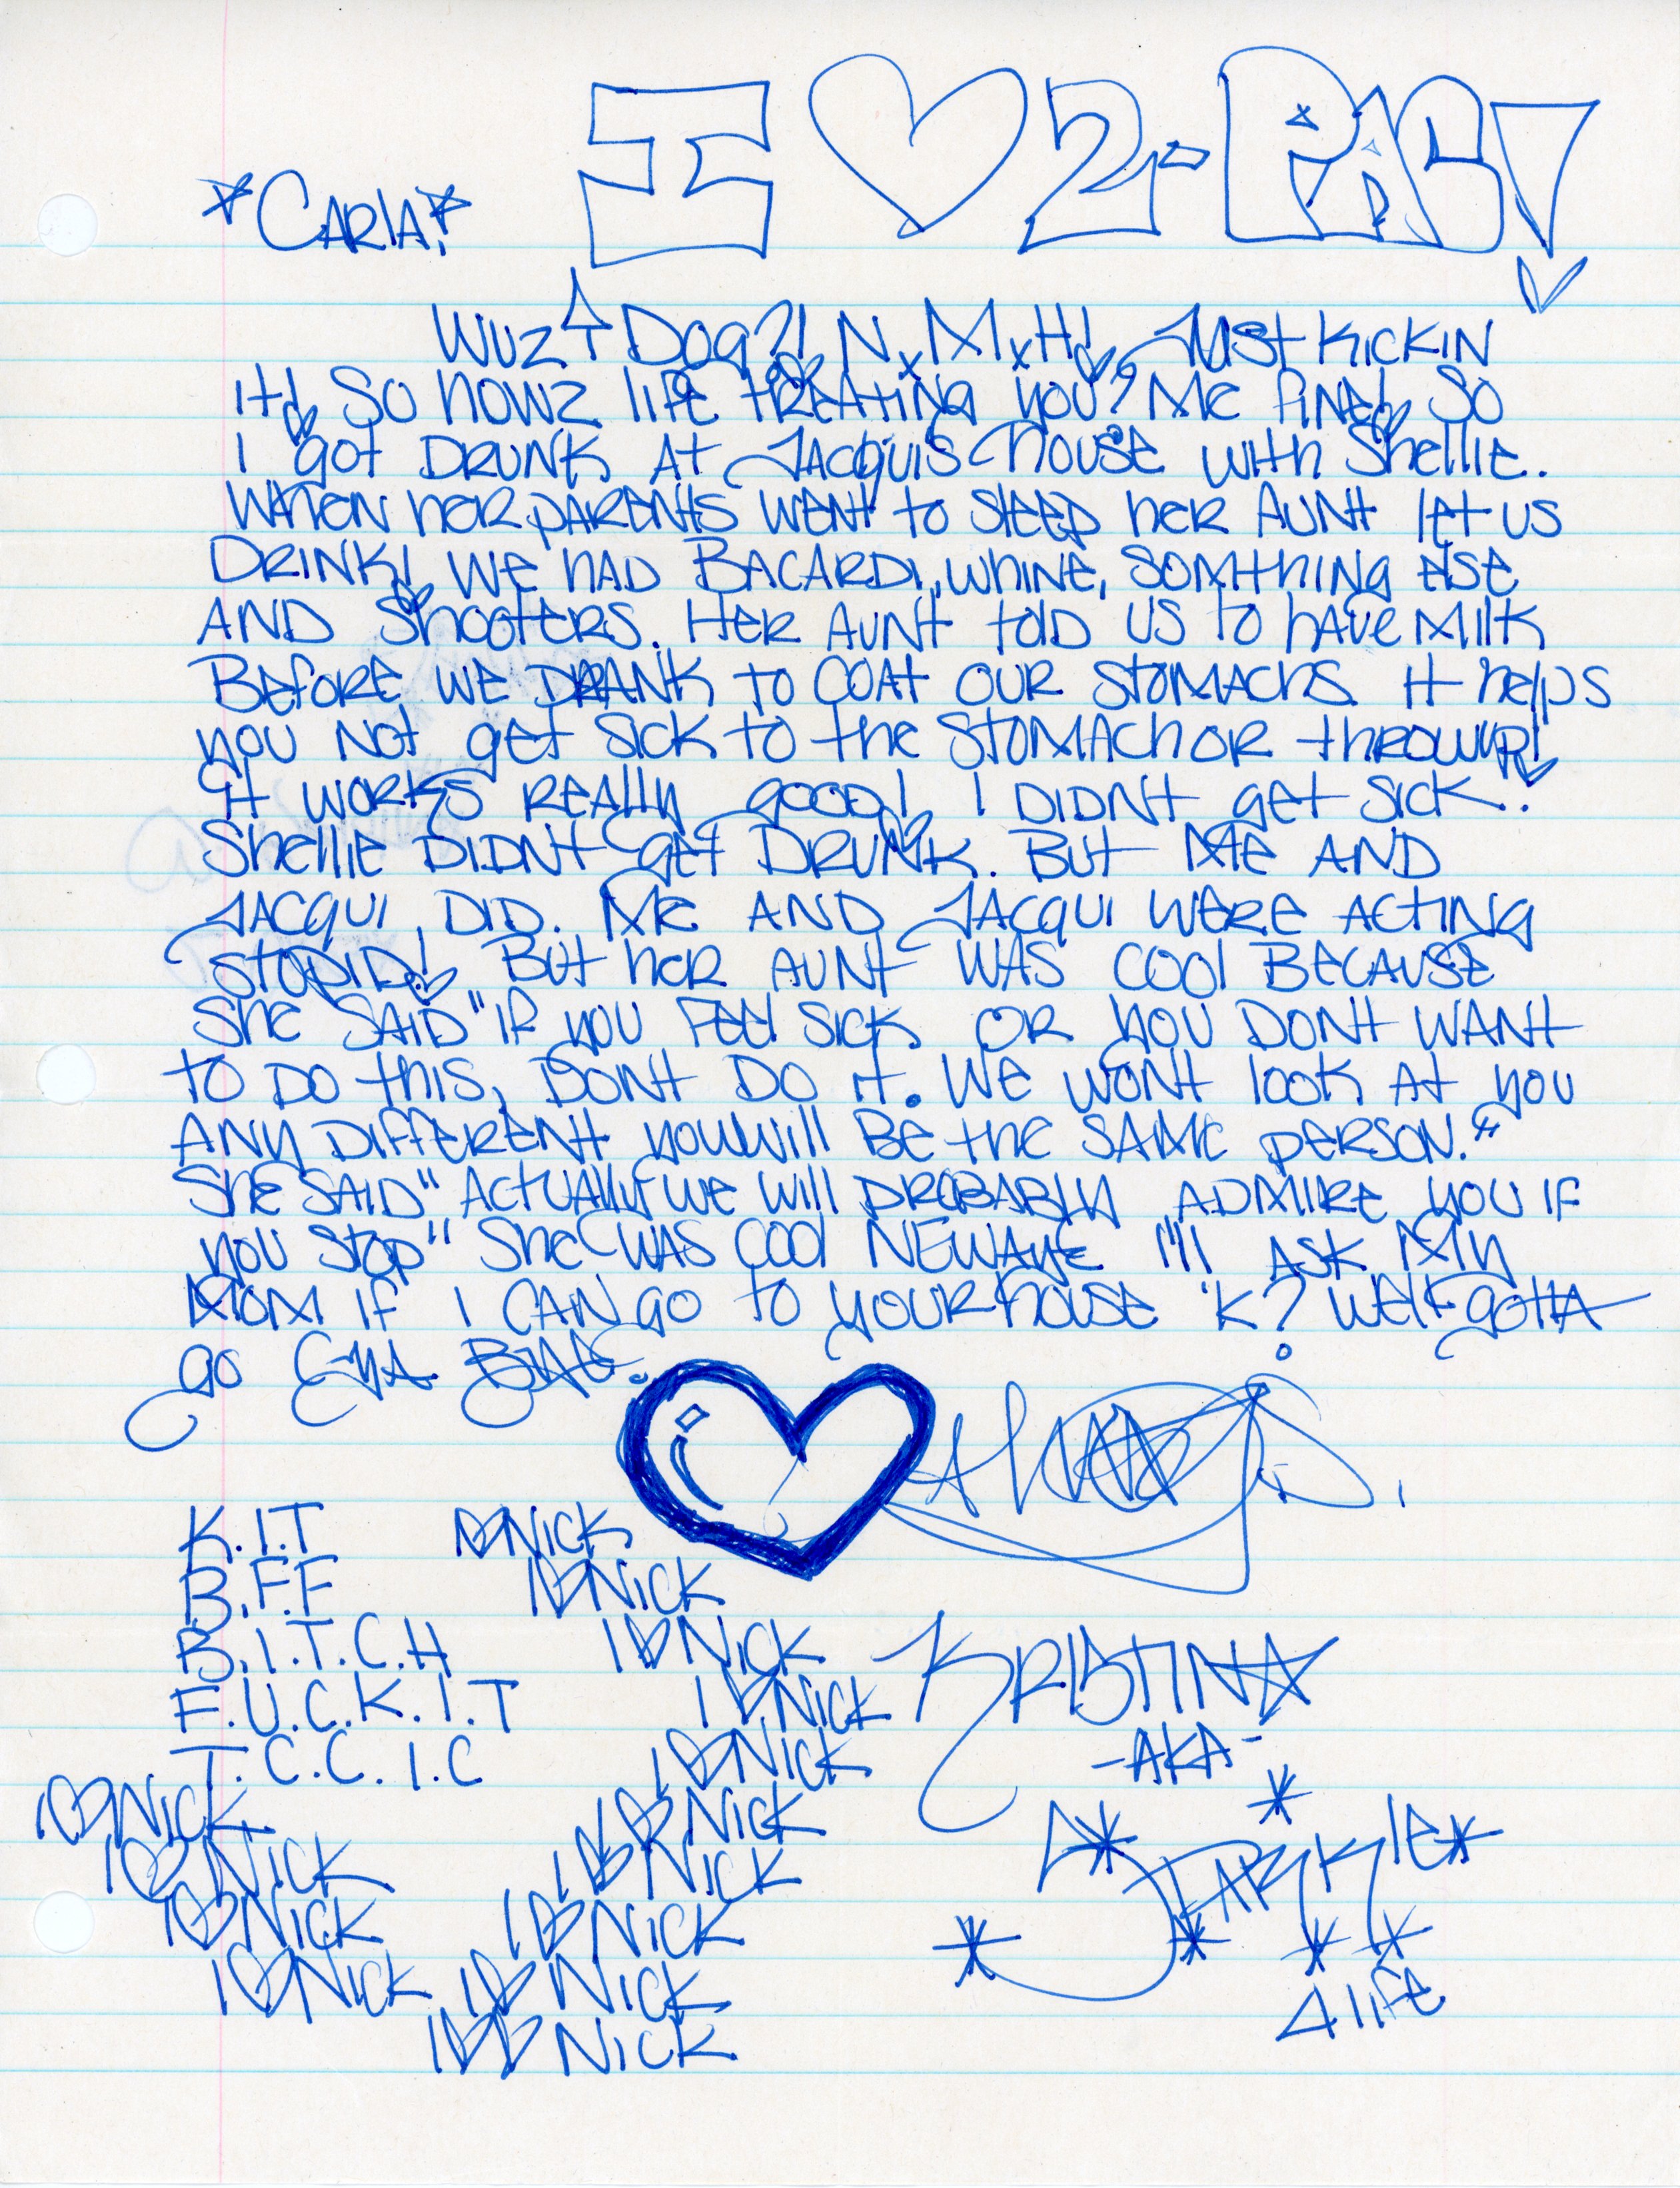 I ♡ 2-PAC!
*CARLA!*
WUZ ↑ DOG?! N x M x H! JUST KICKIN
IT! SO HOWZ LIFE TREATING YOU? ME FINE! SO
I GOT DRUNK AT JACQUIS HOUSE WITH SHELLIE.
WHEN HER PARENTS WENT TO SLEEP HER AUNT LET US
DRINK! WE HAD BACARDI, WHINE, SOMTHING ELSE
AND SHOOTERS. HER AUNT TOLD US TO HAVE MILK
BEFORE WE DRANK TO COAT OUR STOMACHS. IT HELPS
YOU NOT GET SICK TO THE STOMACH OR THROWUP!
IT WORKS REALLY GOOD! I DIDNT GET SICK!
SHELLIE DIDNT GET DRUNK. BUT ME AND
JACQUI DID. ME AND JACQUI WERE ACTING
STUPID! BUT HER AUNT WAS COOL BECAUSE
SHE SAID "IF YOU FEEL SICK OR YOU DONT WANT
TO DO THIS, DONT DO IT. WE WONT LOOK AT YOU
ANY DIFFERENT YOU WILL BE THE SAME PERSON."
SHE SAID "ACTUALLY WE WILL PROBABLY ADMIRE YOU IF
YOU STOP" SHE WAS COOL NEWAYE I'll ASK MY
MOM IF I CAN GO TO YOUR HOUSE 'K? WELL GOTTA
GO C-YA BYAE.
♡ ALWAYS,
K.I.T
B.F.F
B.I.T.C.H
F.U.C.K.I.T
T.C.C.I.C
I♡NICK
I♡NICK
I♡NICK
I♡NICK
I♡NICK
I♡NICK
I♡NICK
I♡NICK
I♡NICK
I♡♡NICK
I♡NICK
I♡NICK
I♡NICK
I♡NICK
KRISTINA
-AKA-
*SPARKIE*
4 LIFE